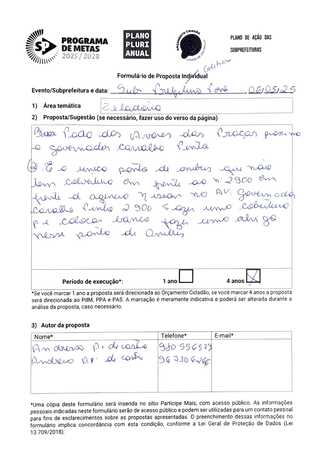 PROGRAMA
DE METAS
2025 / 2028
PLANO
PLURI
ANUAL
PLANO DE AÇÃO DAS
SUBPREFEITURAS
Formulário de Proposta Individual
Evento/Subprefeitura e data: Sub 06/05/25
1) Área temática Zeladoria
2) Proposta/Sugestão (se necessário, fazer uso do verso da página)
dos Arvores das Praças proximo
o governador carvalho Pinto
E o unico ponto de onibus que não
tem cobertura em frente ao nº 2900 em
frente a agencia na AV. Governador
carvalho Pinto 2900 fazer uma cobertura
p e colocar banco fazer uma abrigo
nesse ponto de
Período de execução*: 1 ano 4 anos
*Se você marcar 1 ano a proposta será direcionada ao Orçamento Cidadão, se você marcar 4 anos a proposta
será direcionada ao PdM, PPA e PAS. A marcação é meramente indicativa e poderá ser alterada durante a
análise da proposta, caso necessário.
3) Autor da proposta
Nome* Telefone* E-mail*
Andressa
Andreia
*Uma cópia deste formulário será inserida no sítio Participe Mais, com acesso público. As informações
pessoais indicadas neste formulário serão de acesso público e podem ser utilizadas para um contato pessoal
para fins de esclarecimentos sobre as propostas apresentadas. O preenchimento dessas informações no
formulário implica concordância com esta condição, conforme a Lei Geral de Proteção de Dados (Lei
13.709/2018).